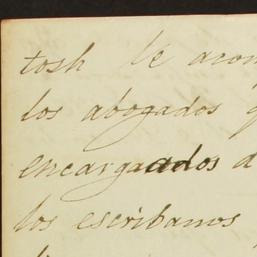 tosh le acon
los abogados
encargados d
los escribanos